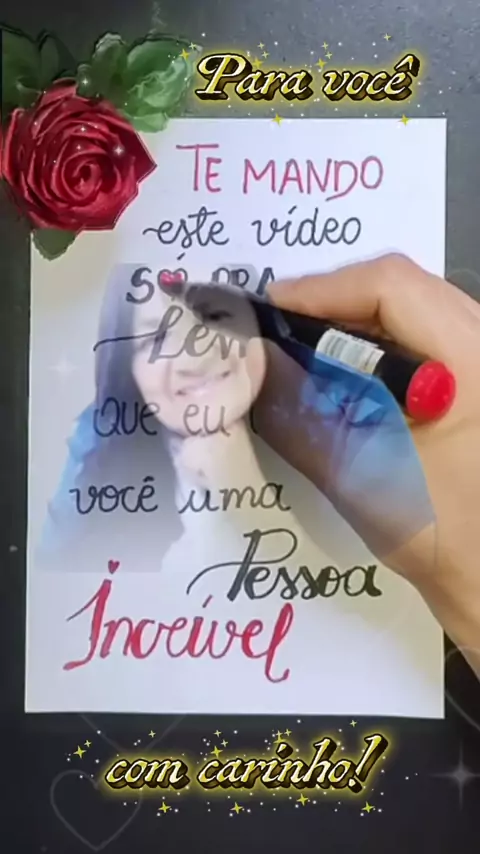 Para você
TE MANDO
este vídeo
SÓ PRA
Lem
Que eu
você uma
Pessoa
Incrível
com carinho!